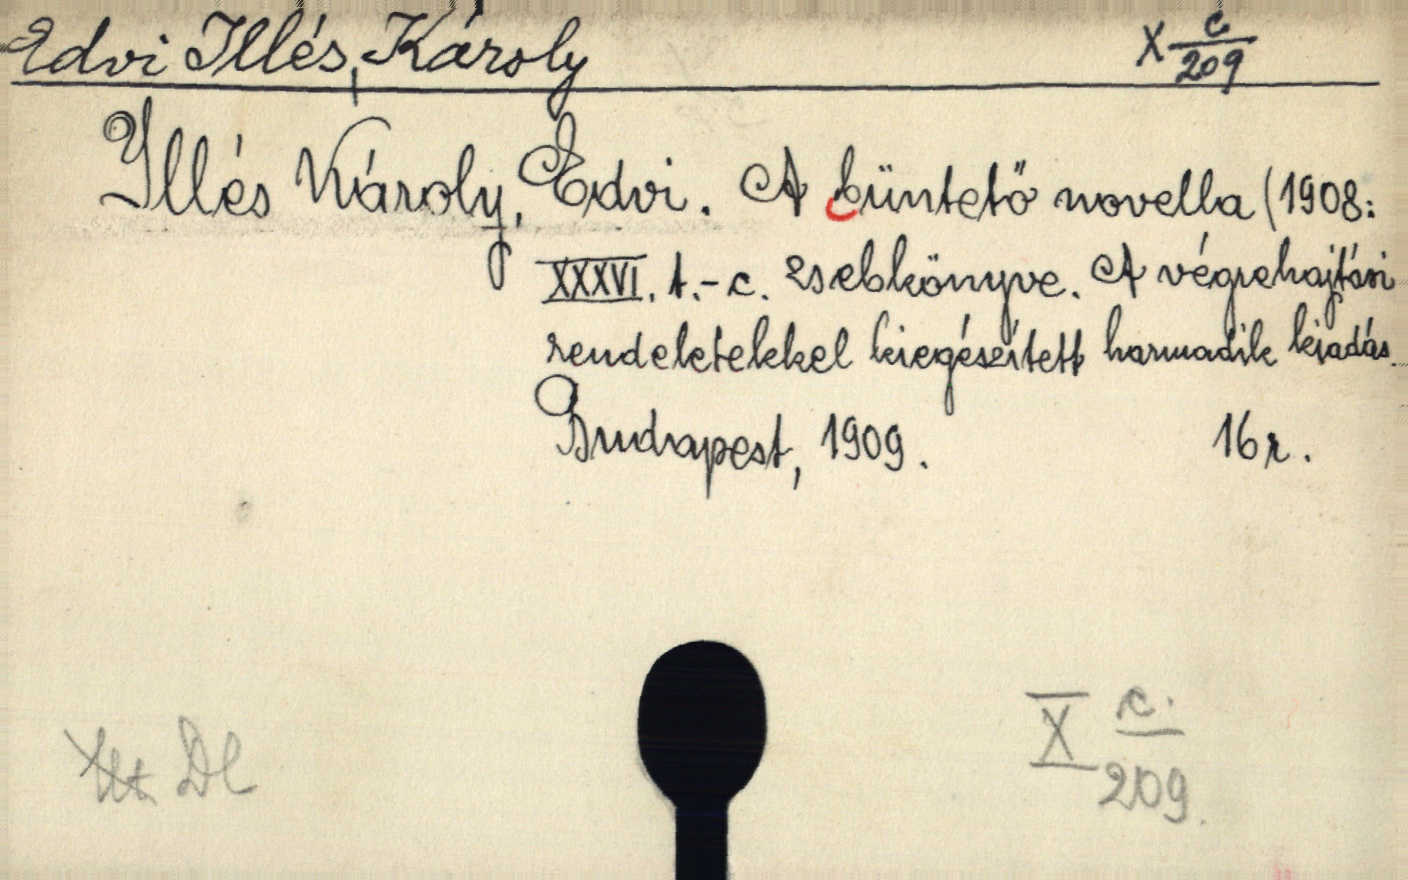 Edvi Illés, Károly X c/209
Illés Károly, Edvi. A büntető novella (1908:
XXXVI. t.-c. zsebkönyve. A végrehajtási
rendeletekkel kiegészített harmadik kiadás.
Budapest, 1909. 16 r.
X c./209.
Dl